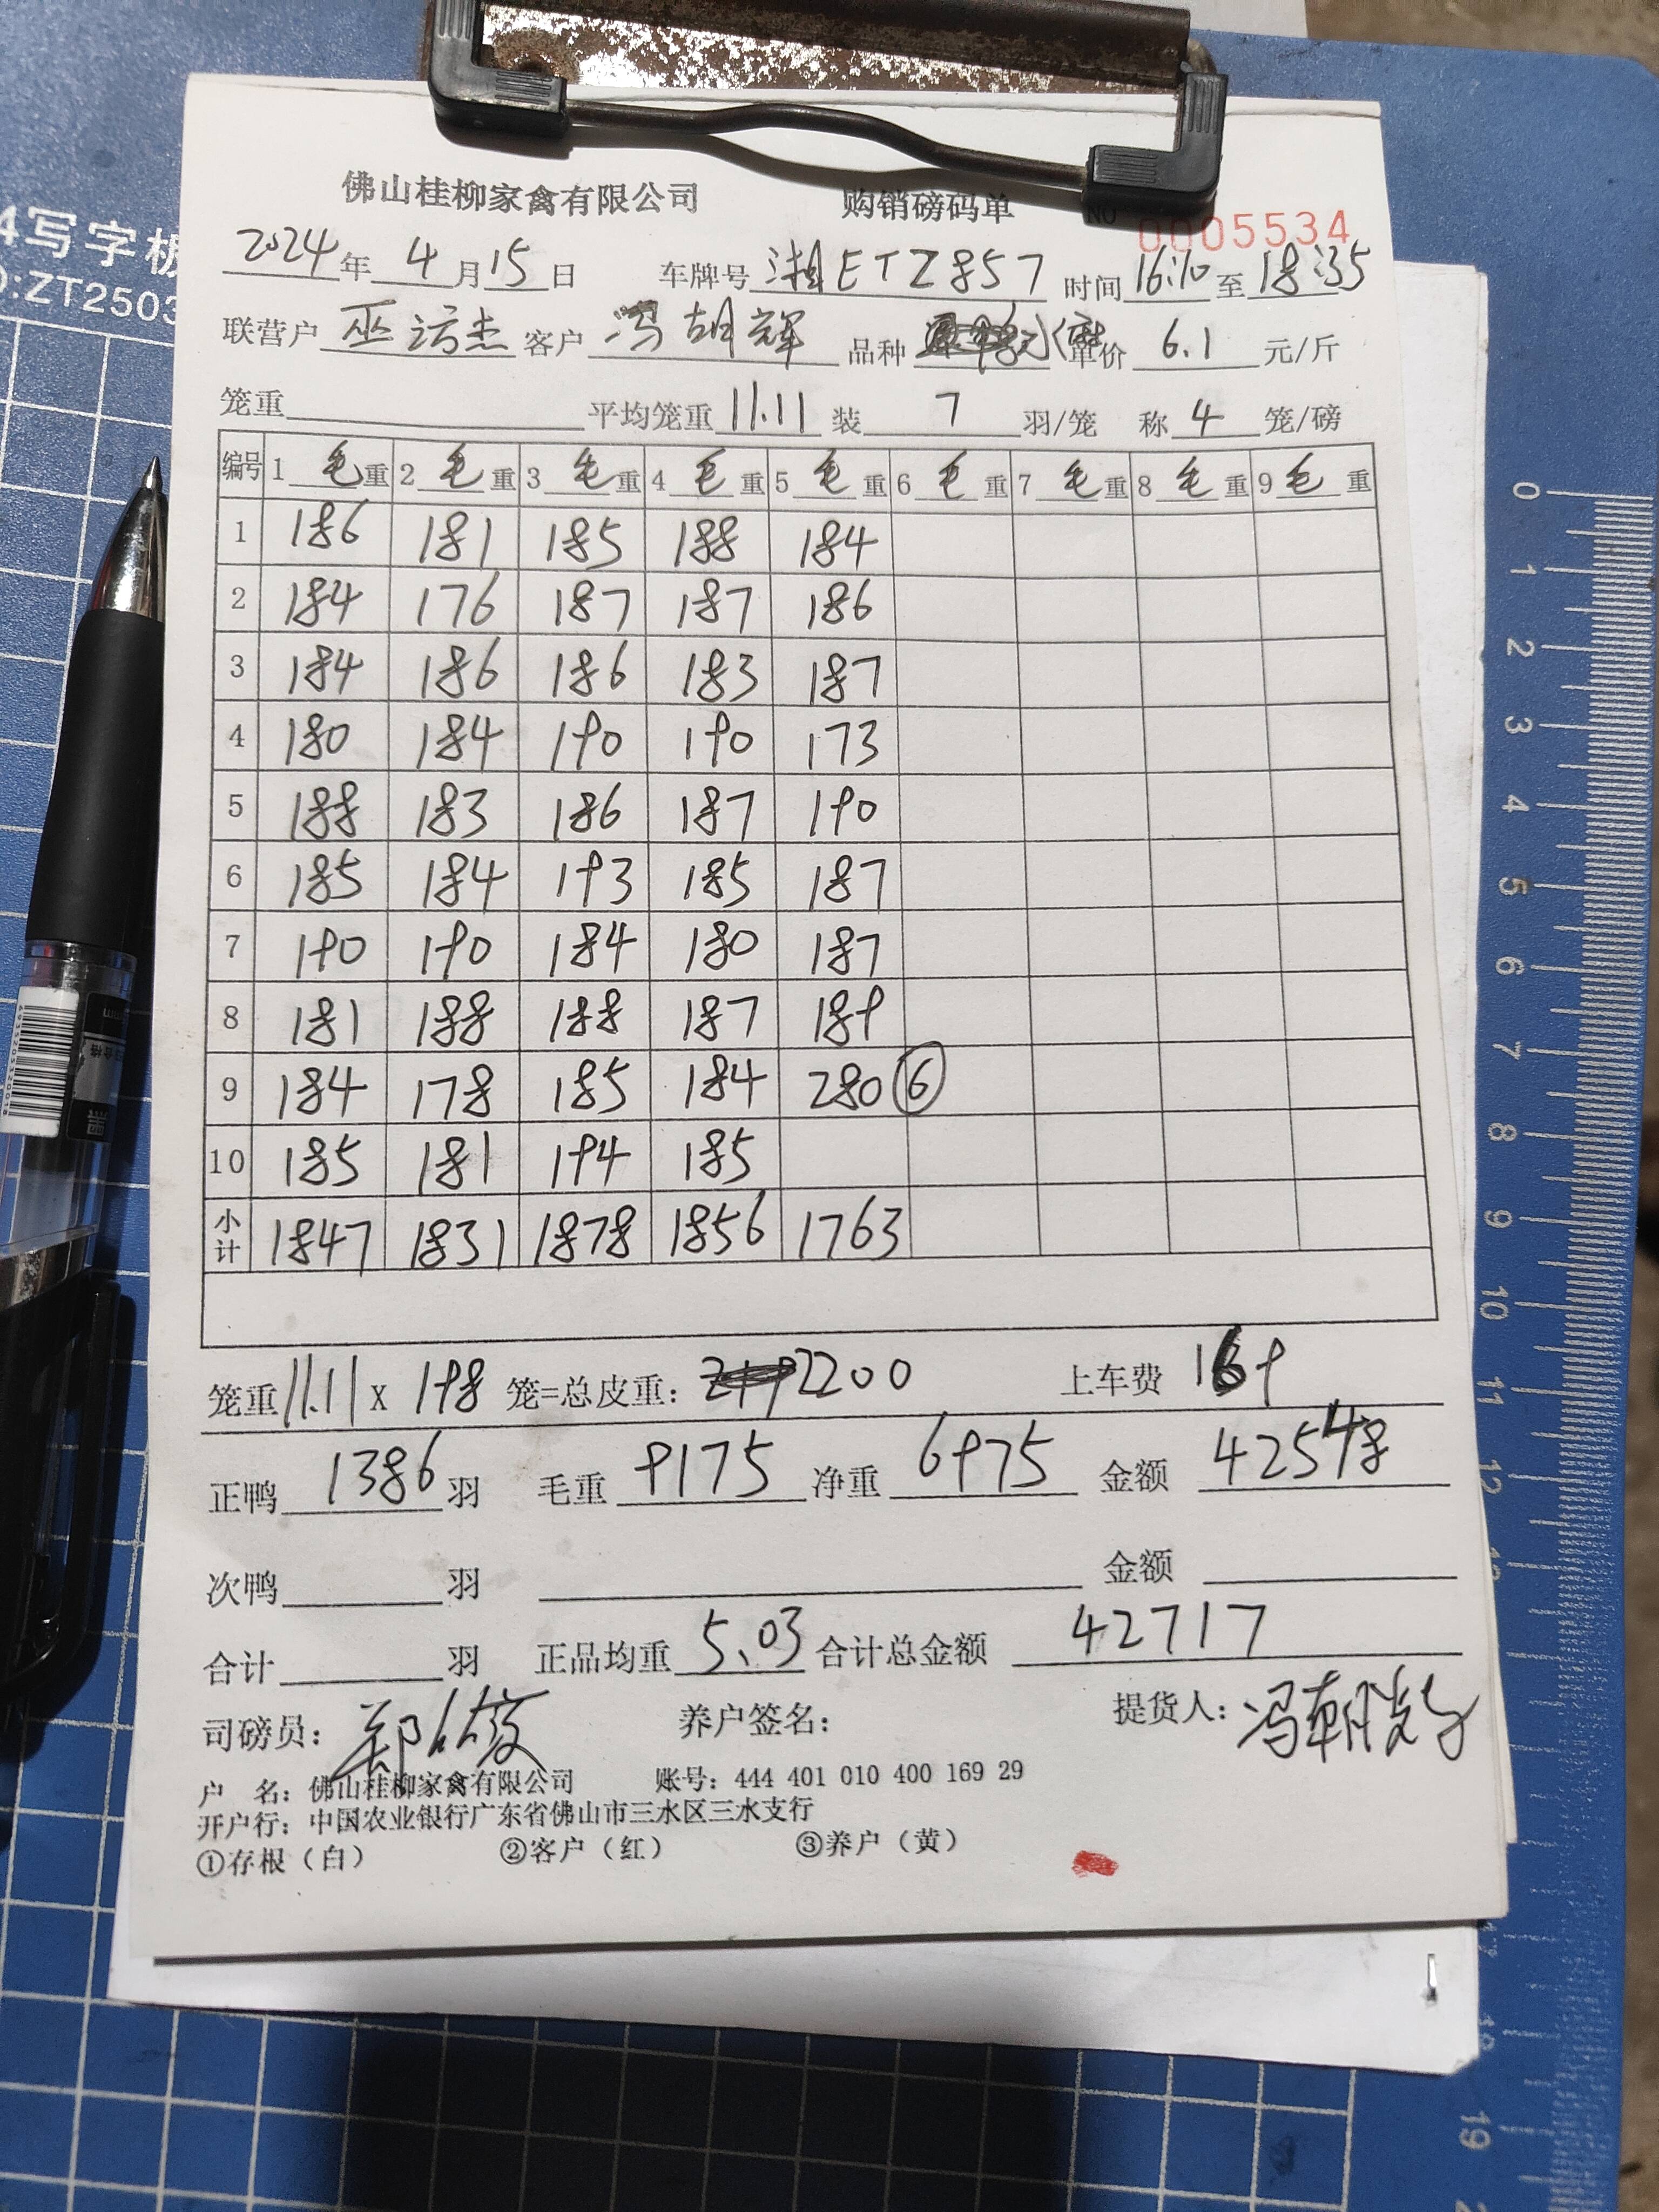 佛山桂柳家禽有限公司 购销磅码单 NO 0005534
2024年 4月15日 车牌号 湘ETZ857 时间16:10至18:35
联营户 客户 冯胡辉 品种 单价 6.1 元/斤
笼重 平均笼重 11.11 装 7 羽/笼 称 4 笼/磅
编号 1 毛重 2 毛重 3 毛重 4 毛重 5 毛重 6 毛重 7 毛重 8 毛重 9 毛重
1 186 181 185 188 184
2 184 176 187 187 186
3 184 186 186 183 187
4 180 184 190 190 173
5 188 183 186 187 190
6 185 184 193 185 187
7 190 190 184 180 187
8 181 188 188 187 189
9 184 178 185 184 280 ⑥
10 185 181 194 185
小计 1847 1831 1878 1856 1763
笼重11.11 X 198 笼=总皮重: 2200 上车费 169
正鸭 1386 羽 毛重 9175 净重 6975 金额 42548
次鸭 羽 金额
合计 羽 正品均重 5.03 合计总金额 42717
司磅员: 养户签名: 提货人:
户 名: 佛山桂柳家禽有限公司 账号: 444 401 010 400 169 29
开户行: 中国农业银行广东省佛山市三水区三水支行
①存根（白） ②客户（红） ③养户（黄）
4写字板
O:ZT2503
0
1
2
3
4
5
6
7
8
9
10
11
12
19